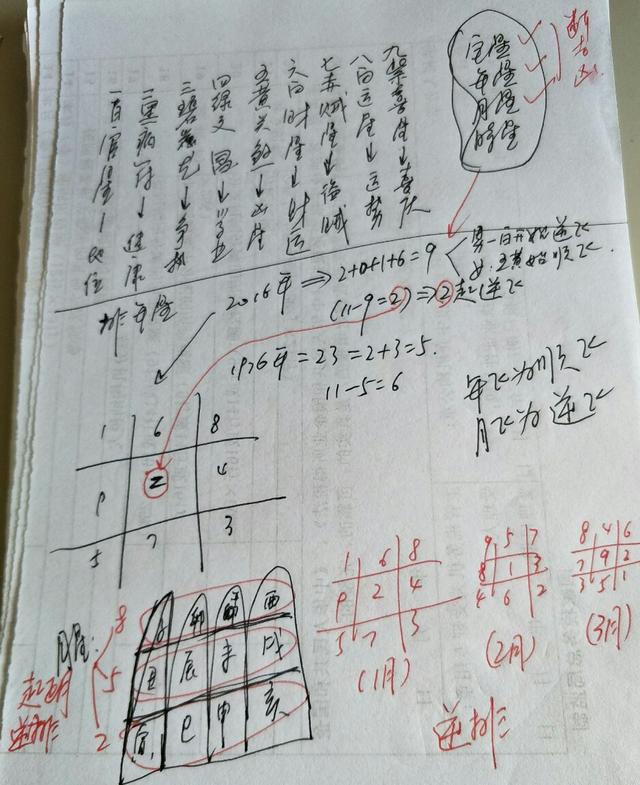 宅星
年星
月星
时星
九紫喜星→喜庆
八白运星→运势
七赤贼星→偷贼
六白财星→财运
五黄灾煞→凶星
四绿文 →学业
三碧 →争执
二黑病符→健康
一白官星→
排年星
2016年⇒2+0+1+6=9
男一白开始逆飞
女五黄始顺飞.
(11-9=2)⇒2起逆飞
1976年=23=2+3=5.
11-5=6
年飞为顺飞
月飞为逆飞
1 6 8
9 2 4
5 7 3
月星:
8
5
2
起正月
逆排
子 卯 午 酉
丑 辰 未 戌
寅 巳 申 亥
1 6 8
9 2 4
5 7 3
(1月)
9 5 7
8 1 3
4 6 2
(2月)
8 4 6
7 9 2
3 5 1
(3月)
逆排